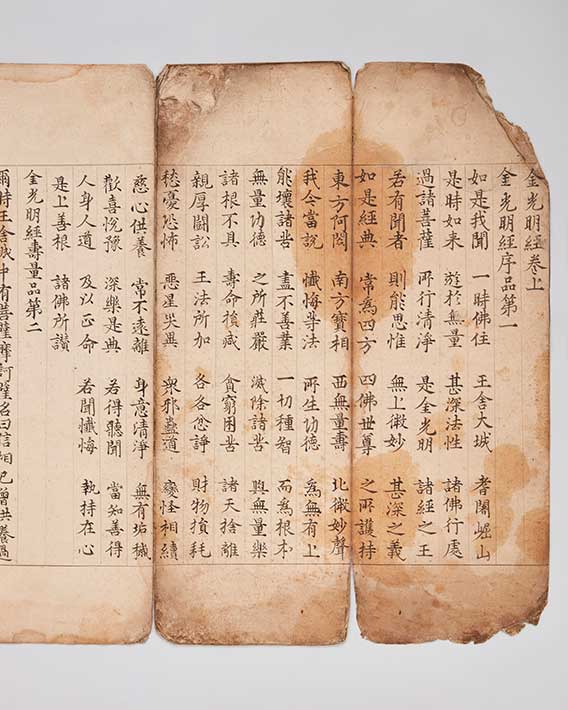 金光明經卷上
金光明經序品第一
如是我聞 一時佛住 王舍大城 耆闍崛山
是時如來 遊於無量 甚深法性 諸佛行處
過諸菩薩 所行清淨 是金光明 諸經之王
若有聞者 則能思惟 無上微妙 甚深之義
如是經典 常為四方 四佛世尊 之所護持
東方阿閦 南方寶相 西無量壽 北微妙聲
我今當說 懺悔等法 所生功德 為無有上
能壞諸苦 盡不善業 一切種智 而為根本
無量功德 之所莊嚴 滅除諸苦 與無量樂
諸根不具 壽命損減 貧窮困苦 諸天捨離
親厚鬪訟 王法所加 各各忿諍 財物損耗
愁憂恐怖 惡星災異 衆邪蠱道 變怪相續
慈心供養 常不遠離 身意清淨 無有垢穢
歡喜悅豫 深樂是典 若得聽聞 當知善得
人身人道 及以正命 若聞懺悔 執持在心
是上善根 諸佛所讚
金光明經壽量品第二
爾時王舍城中有菩薩摩訶薩名曰信相已曾供養過